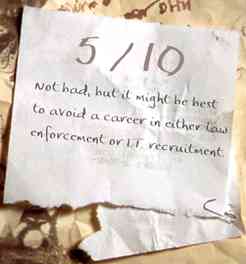 DHH
5/10
Not bad, but it might be best
to avoid a career in either law
enforcement or I.T. recruitment.